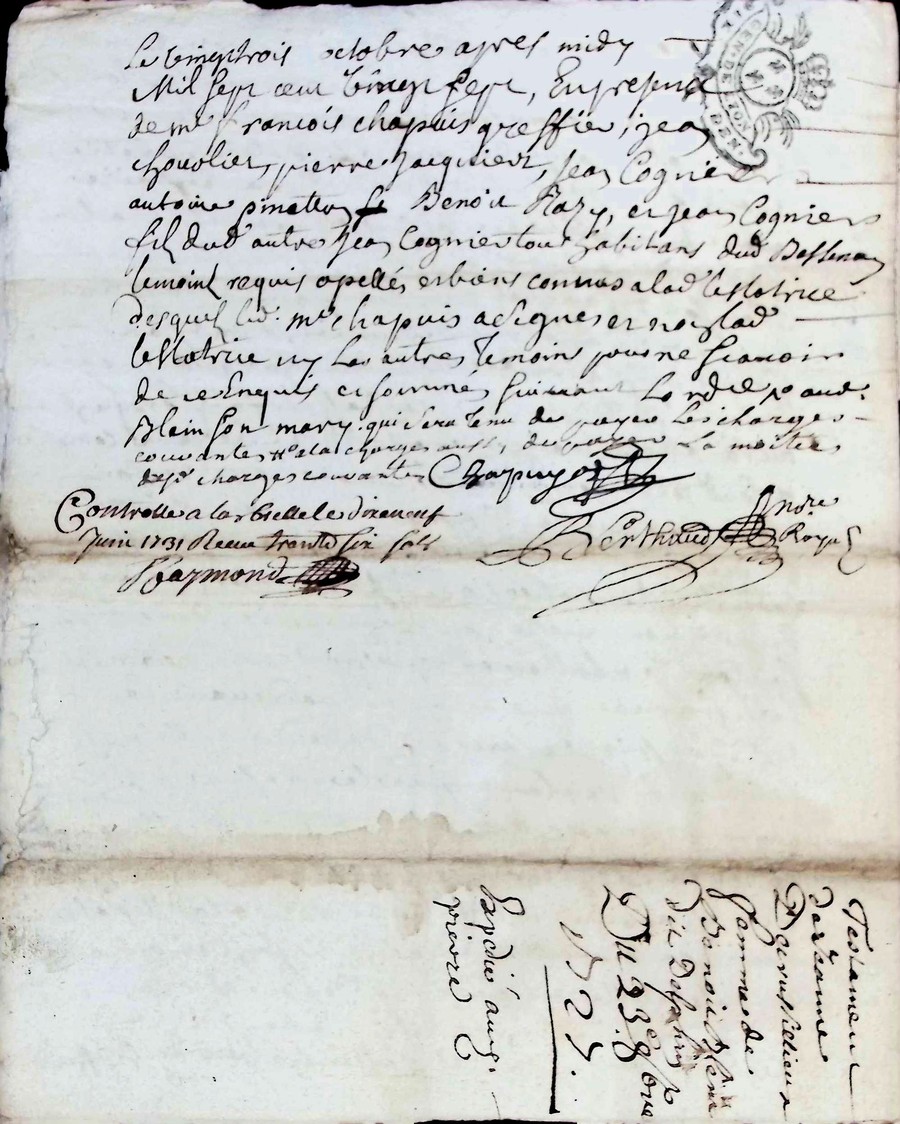 Le vingtrois octobre apres midy
Mil sept cent vingt sept, En presence
de me francois chapuis greffier, jean
chovolier, pierre Jacquiert, Jean Cognier
antoine Benoit Razy, et jean Cognier
filz dud autre Jean Cognier tous habitans dud Bessenay
temoins requis apellés et biens connus a lad testatrice
desquels led. me chapuis a signés et non lad
testatrice ny les autres temoins pour ne scavoir
de ce Enquis et sommés suivant Lord
son mary qui sera tenu de payer les charges
courantes de payer La moitie
charges courantes Chapuys
Controlle a la le dixneuf
Juin 1731 Receu trante six sols
Raymond
Berthaud
Nore
Royal
Testament
Femme de
Benoit
dit Delphin
Du 23e 8bre
1727.
Expedié